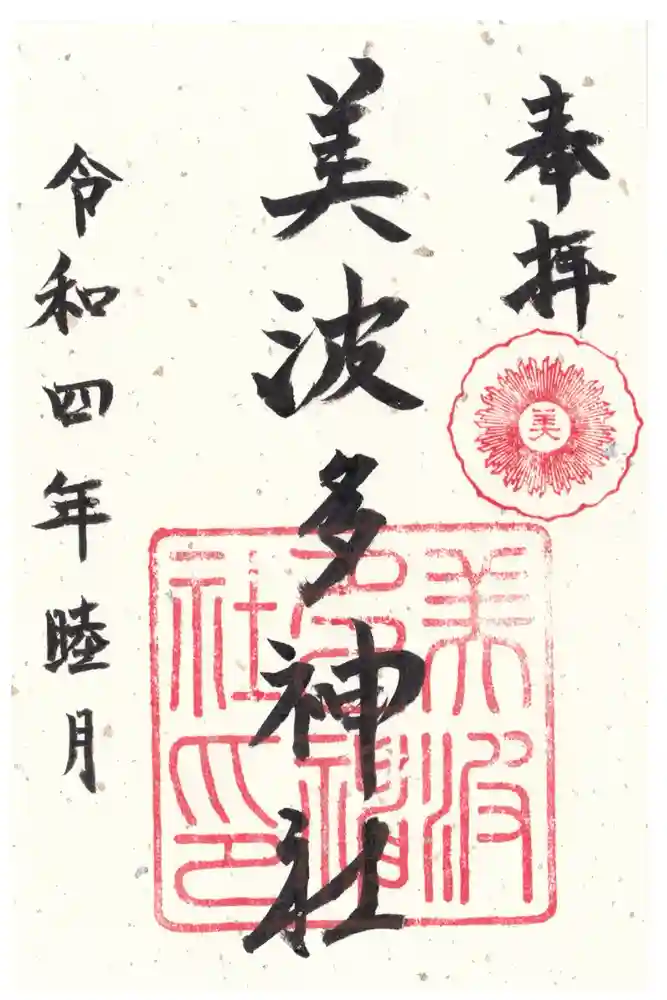 奉拝
美
美波多神社
美波多神社印
令和四年睦月